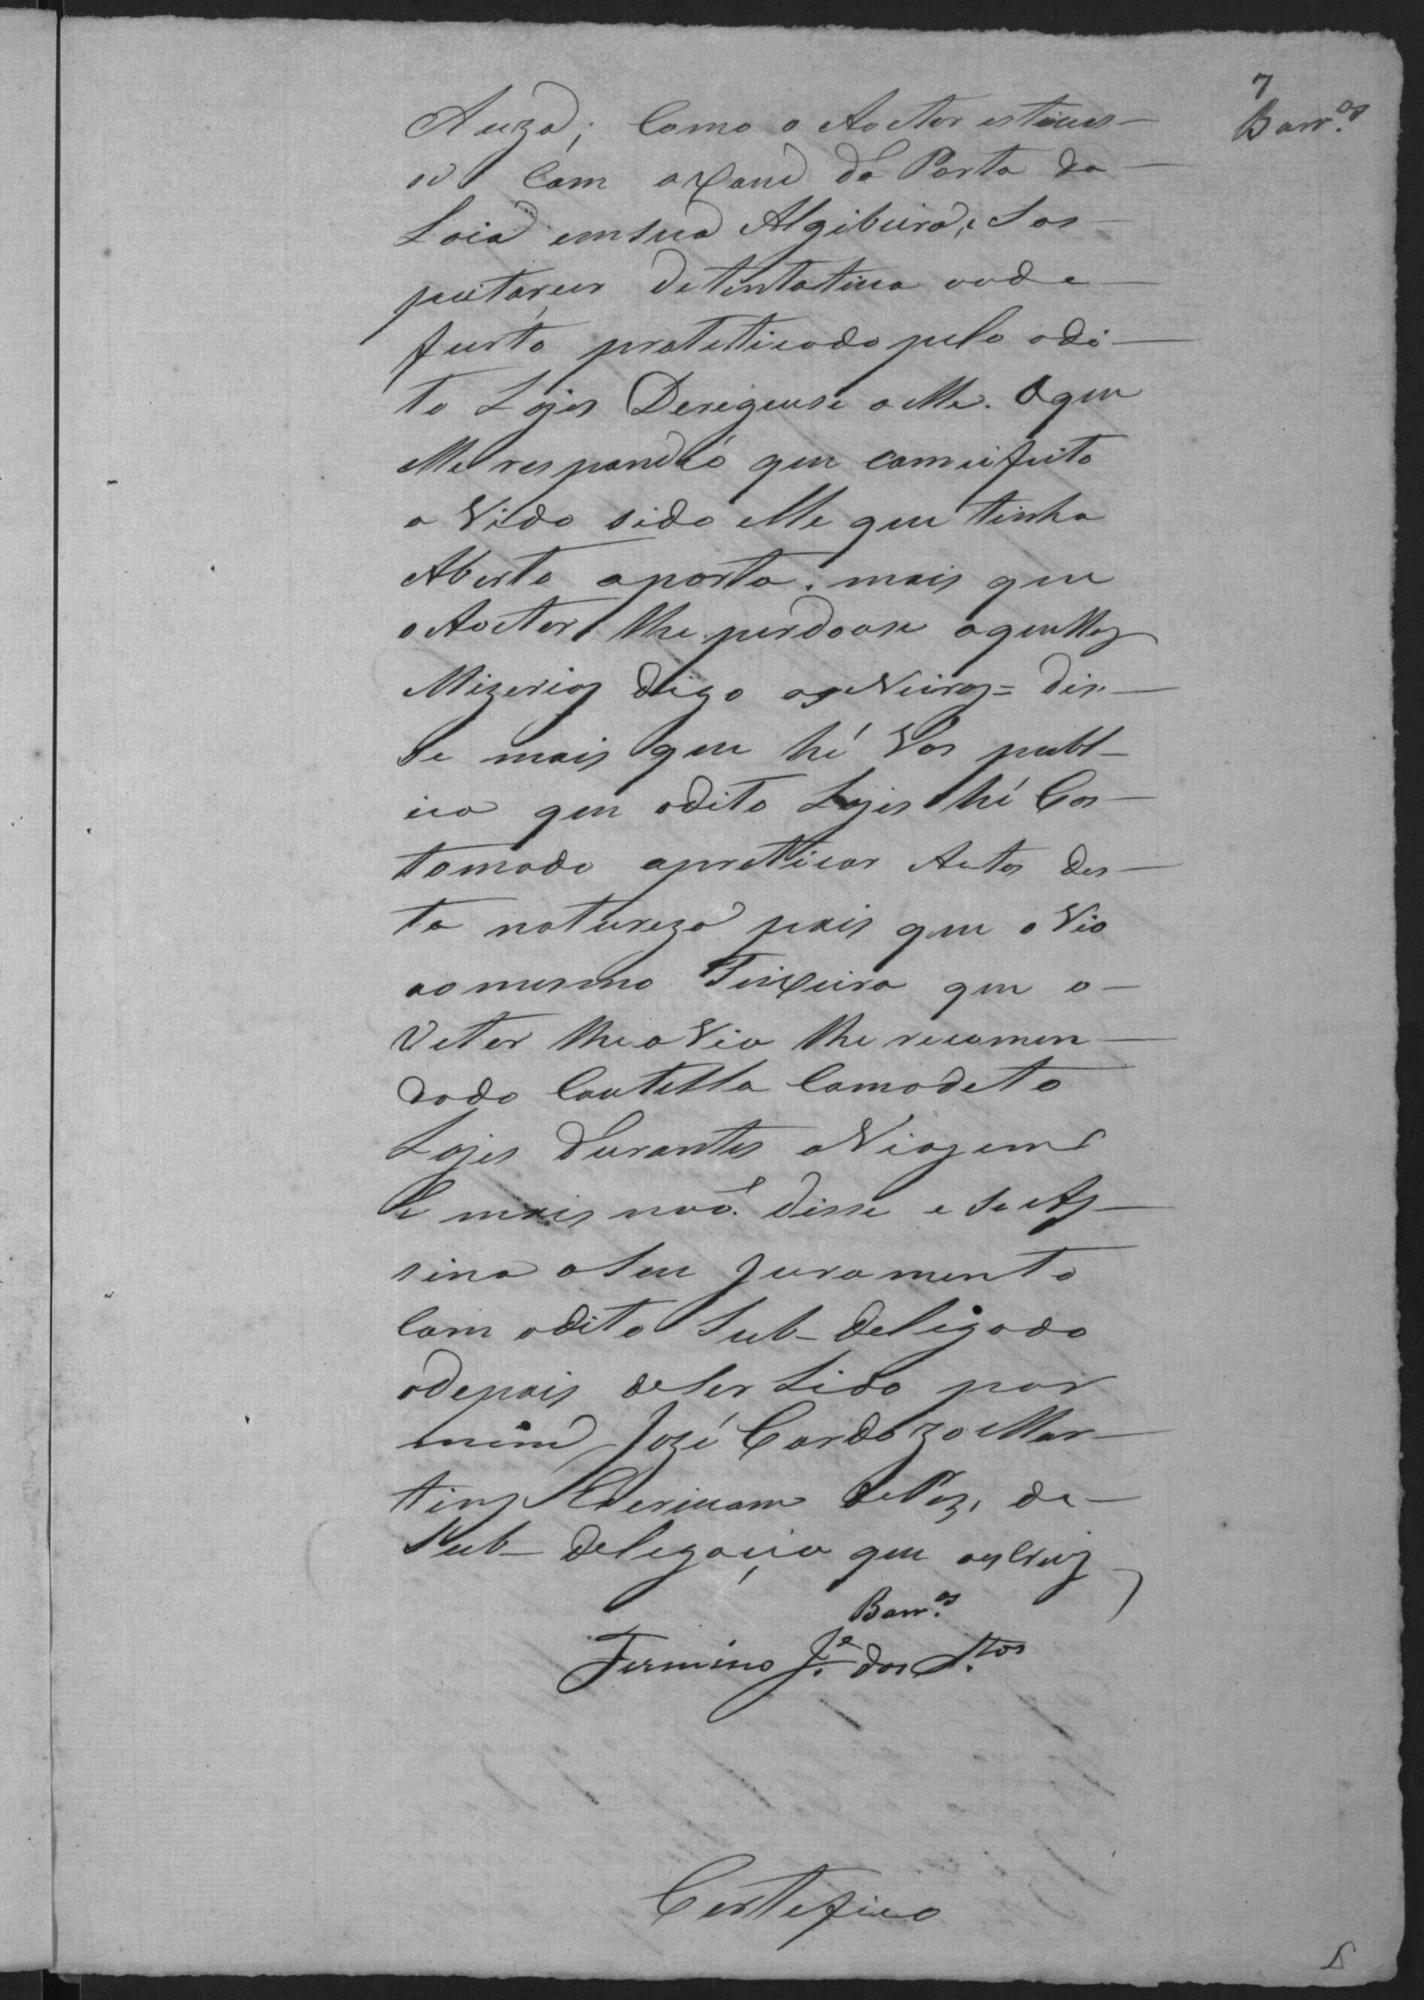 7
Barr.os
Auzo; Como o Autor estives-
se Com a xave da Porta da
Loia em sua Algibeira, e Sos-
peitaçem detentativa ou de
furto pratiticado pelo odi-
to Lojes Deregeuse a elle. Oque
elle respondeó que com eifeito
a Vido sido elle que tinha
Aberto aporta; mais que
o Autor lhe perdoase aquellas
Mizerias digo asNeiras= dis-
se mais que hé Vos publ-
ica que odito Lojes hé Cos-
tomado apraticar Actos des-
ta natureza pois que o Vio
ao mesmo Teixeira que o
Vetor lhe a Via lhe recomen-
dado Cautella Com odeto
Lojes durantes a Viagem
E mais naõ disse e Se As-
sina o Seu juramento
Com odito Sub-deligado
odepois de Ser Lido por
mim José Cardozo Mar-
tins Escrivam de Paz, da
Sub-delegaçia que as crevy
Barr.os
Firmino Je. dos S.tos
Certefico